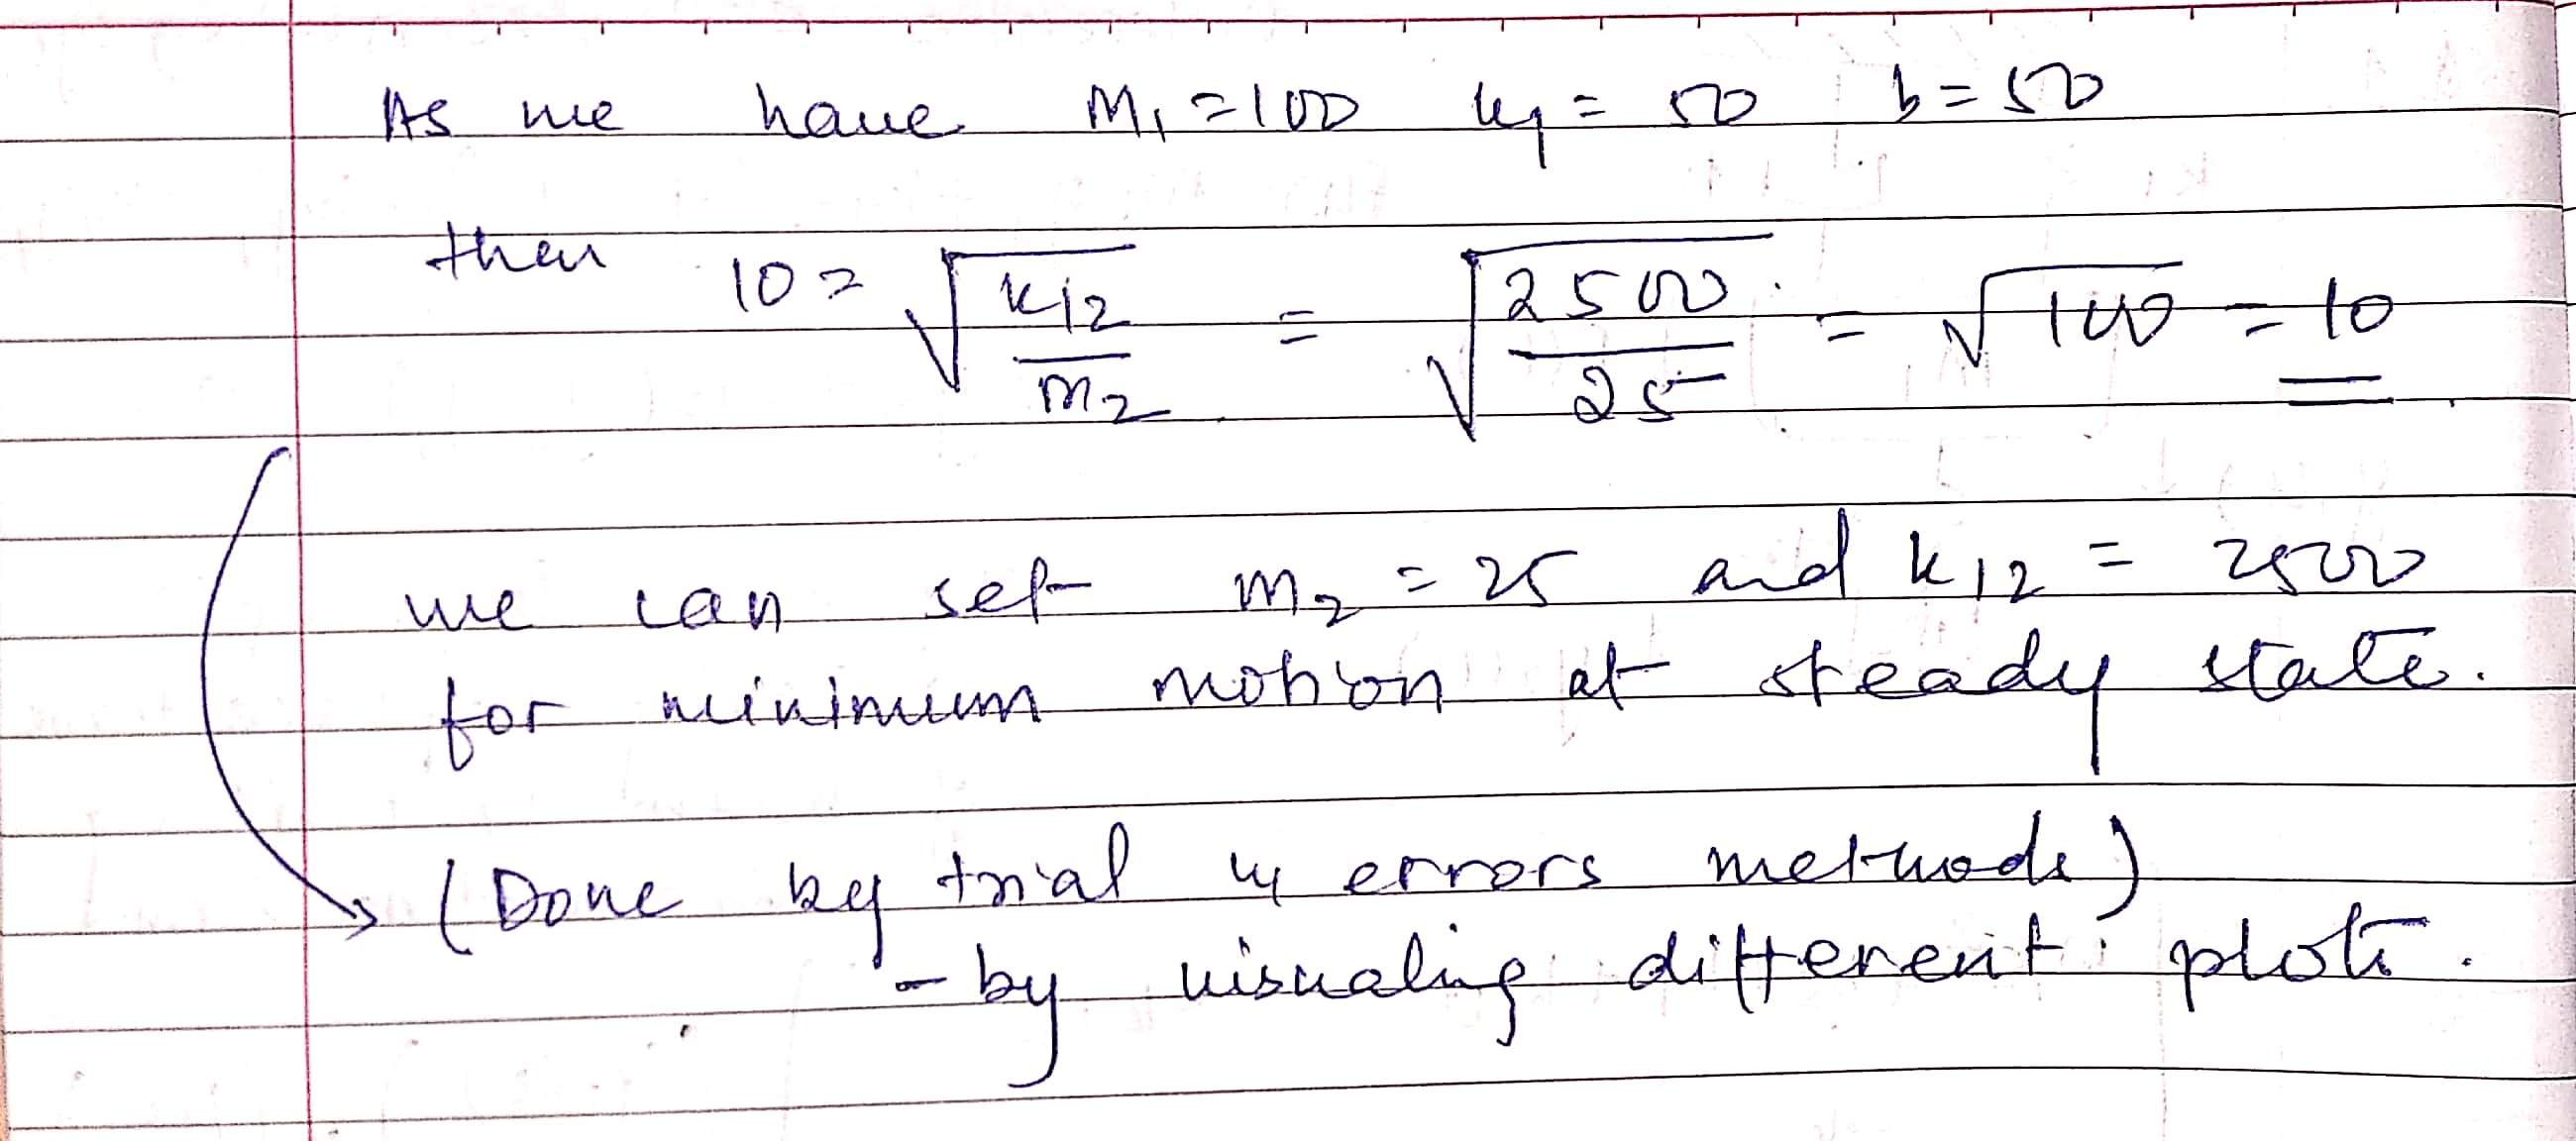 As we have M₁ = 100 k₁ = 50 b = 50
then 10 = √(k12/m2) = √(2500/25) = √100 = 10
we can set m2 = 25 and k12 = 2500
for minimum motion at steady state.
(Done by trial & errors methods)
- by visualing different plots.